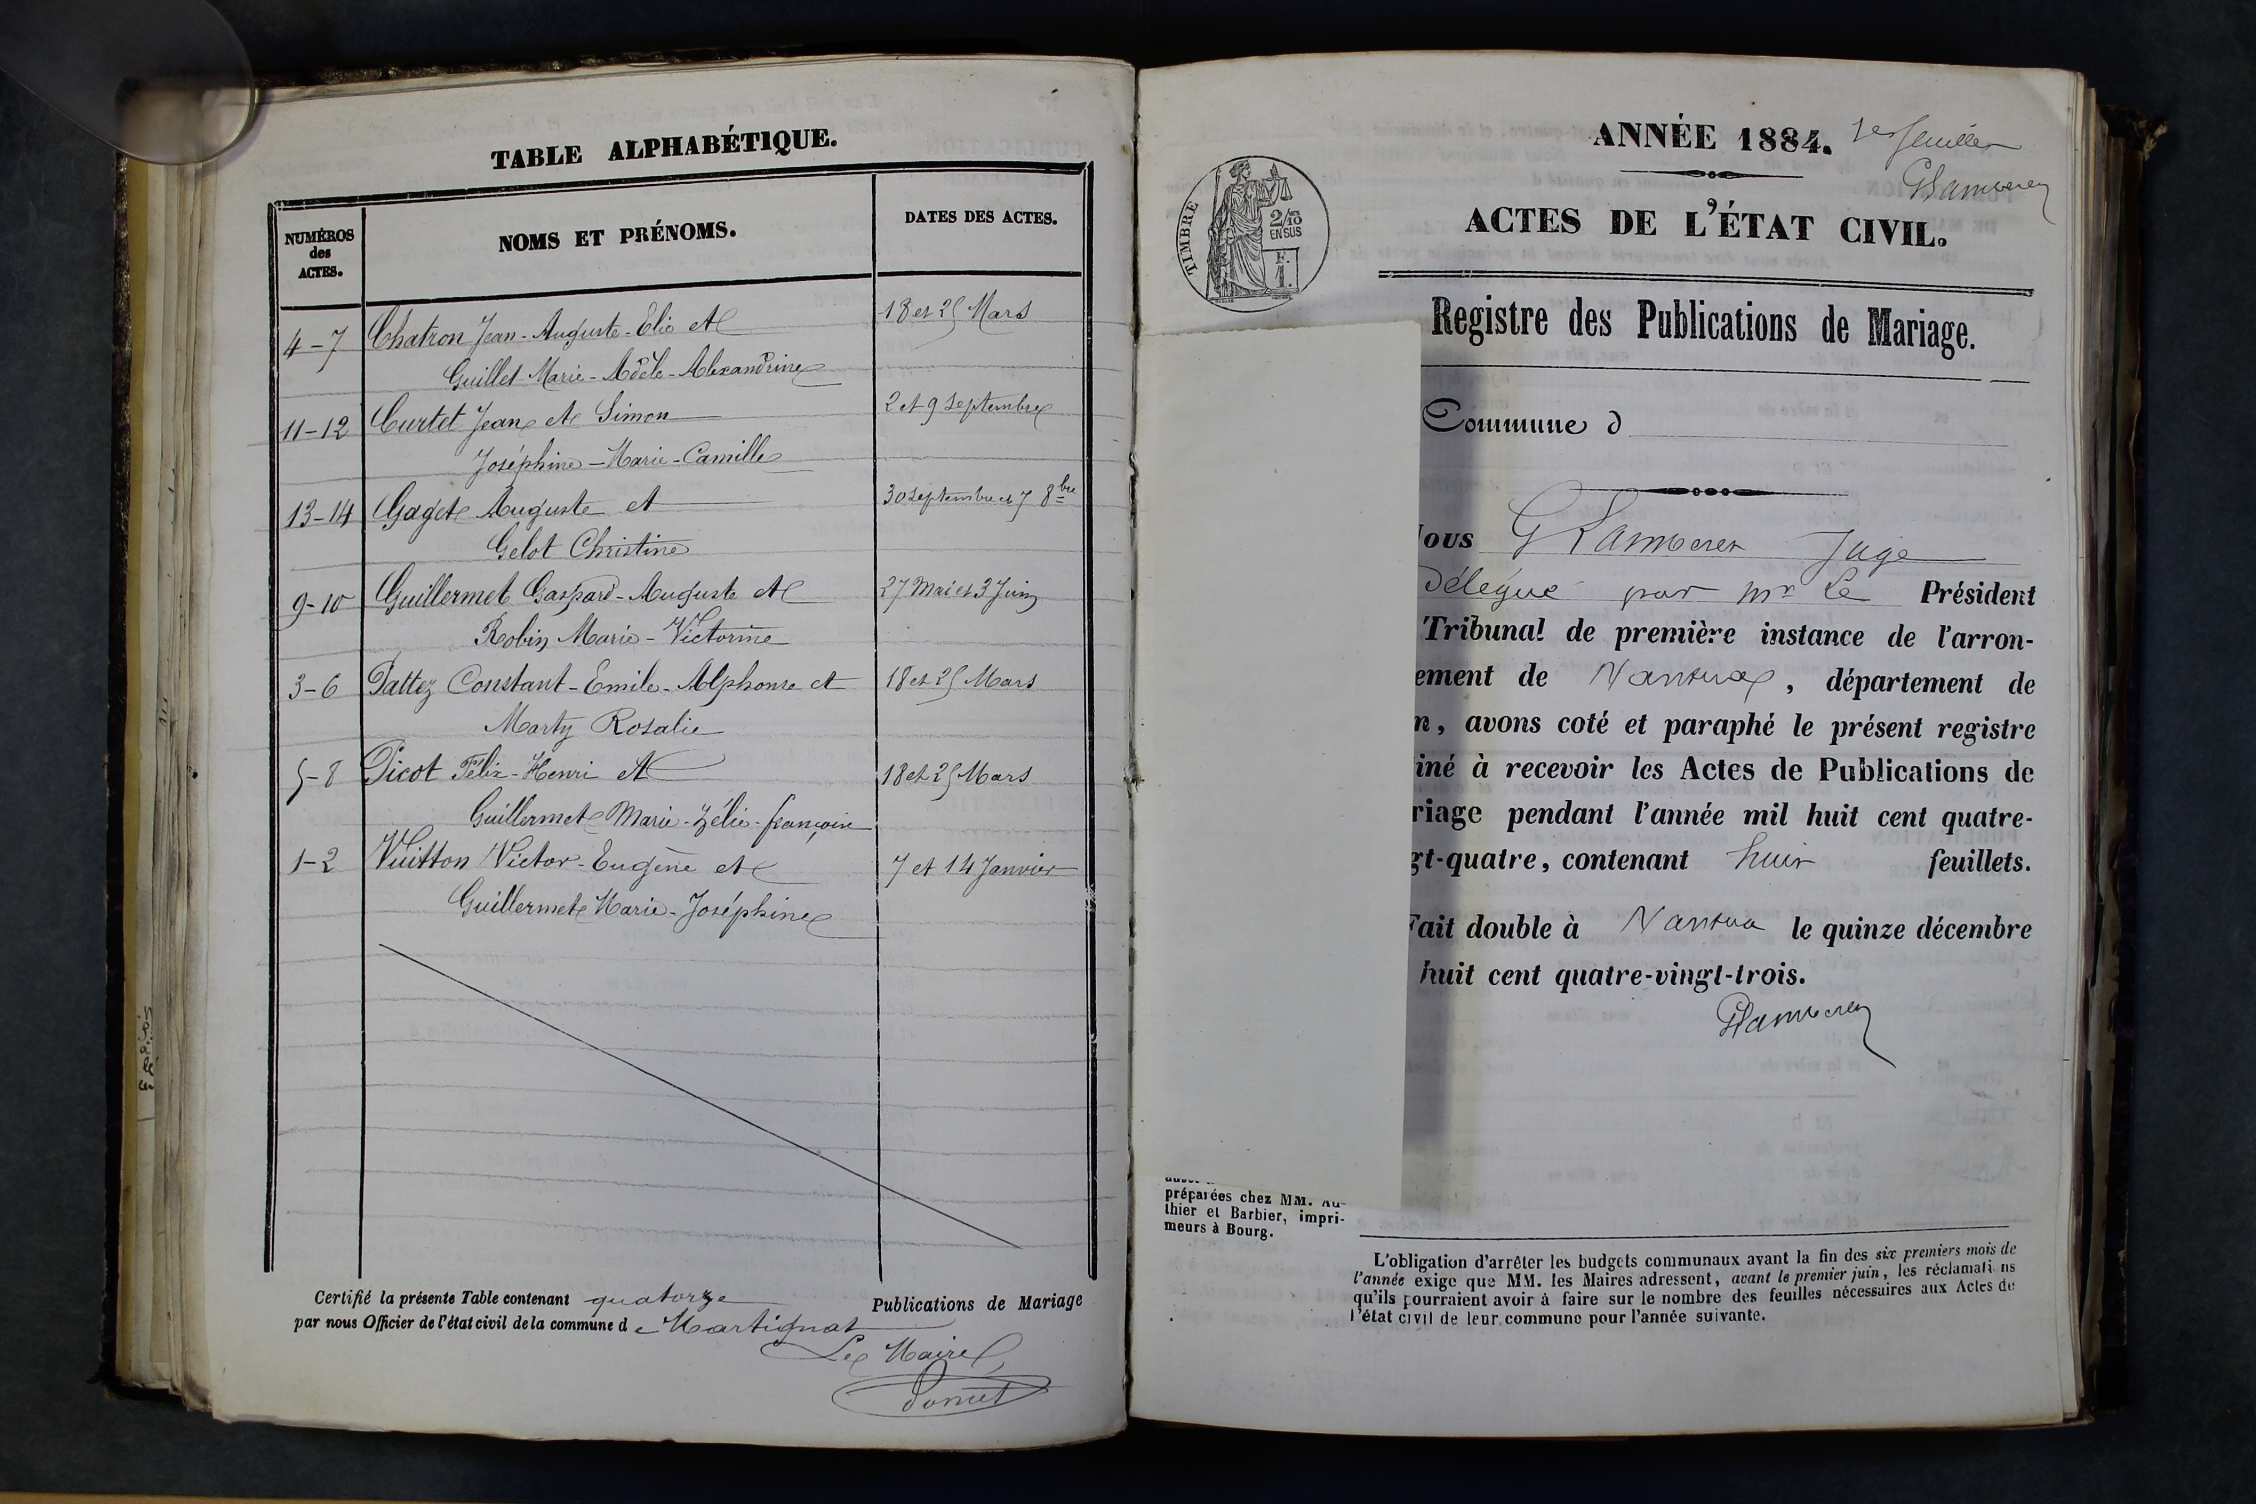 TABLE ALPHABÉTIQUE.
NUMÉROS
des
ACTES.
NOMS ET PRÉNOMS.
DATES DES ACTES.
4-7 Chatron Jean-Auguste-Elie et 18 et 25 Mars
Guillet Marie-Adèle-Alexandrine
11-12 Curtet Jean et Simon 2 et 9 Septembre
Joséphine-Marie-Camille
13-14 Gaget Auguste et 30 Septembre et 7 8bre
Gelot Christine
9-10 Guillermet Gaspard-Auguste et 27 Mai et 3 Juin
Robin Marie-Victorine
3-6 Pattez Constant-Emile-Alphonse et 18 et 25 Mars
Marty Rosalie
5-8 Picot Félix-Henri et 18 et 25 Mars
Guillermet Marie-Zélie-françoise
1-2 Vuitton Victor-Eugène et 7 et 14 Janvier
Guillermet Marie-Joséphine
Certifié la présente Table contenant quatorze Publications de Mariage
par nous Officier de l'état civil de la commune de Martignat
Le Maire
ANNÉE 1884.
1er feuillet
TIMBRE
2/10
EN SUS
F.
1.
ACTES DE L'ÉTAT CIVIL.
Registre des Publications de Mariage.
Commune d
ous Juge
Délégué par Mr le Président
Tribunal de première instance de l'arron-
ement de Nantua, département de
n, avons coté et paraphé le présent registre
iné à recevoir les Actes de Publications de
riage pendant l'année mil huit cent quatre-
gt-quatre, contenant huit feuillets.
Fait double à Nantua le quinze décembre
huit cent quatre-vingt-trois.
préparées chez MM. Au-
thier et Barbier, impri-
meurs à Bourg.
L'obligation d'arrêter les budgets communaux avant la fin des six premiers mois de
l'année exige que MM. les Maires adressent, avant le premier juin, les réclamations
qu'ils pourraient avoir à faire sur le nombre des feuilles nécessaires aux Actes de
l'état civil de leur commune pour l'année suivante.